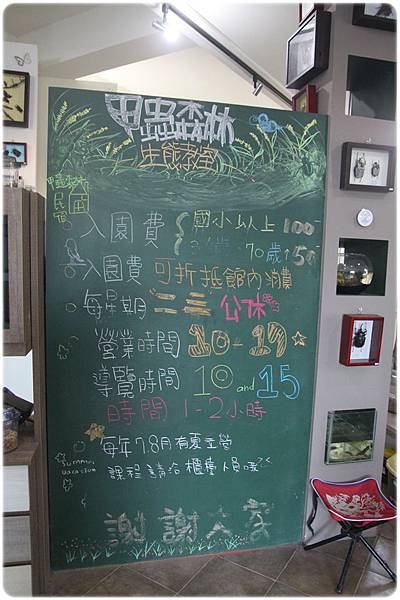 甲蟲森林
生態教室
甲蟲森林
民宿
入園費 { 國小以上 100
70歲↑50
入園費 可折抵館內消費
每星期 二三 公休
營業時間 10-17
導覽時間 10 and 15
時間 1-2小時
每年7.8月有夏令營
課程請洽櫃檯人員
summer
vacation
謝謝大家